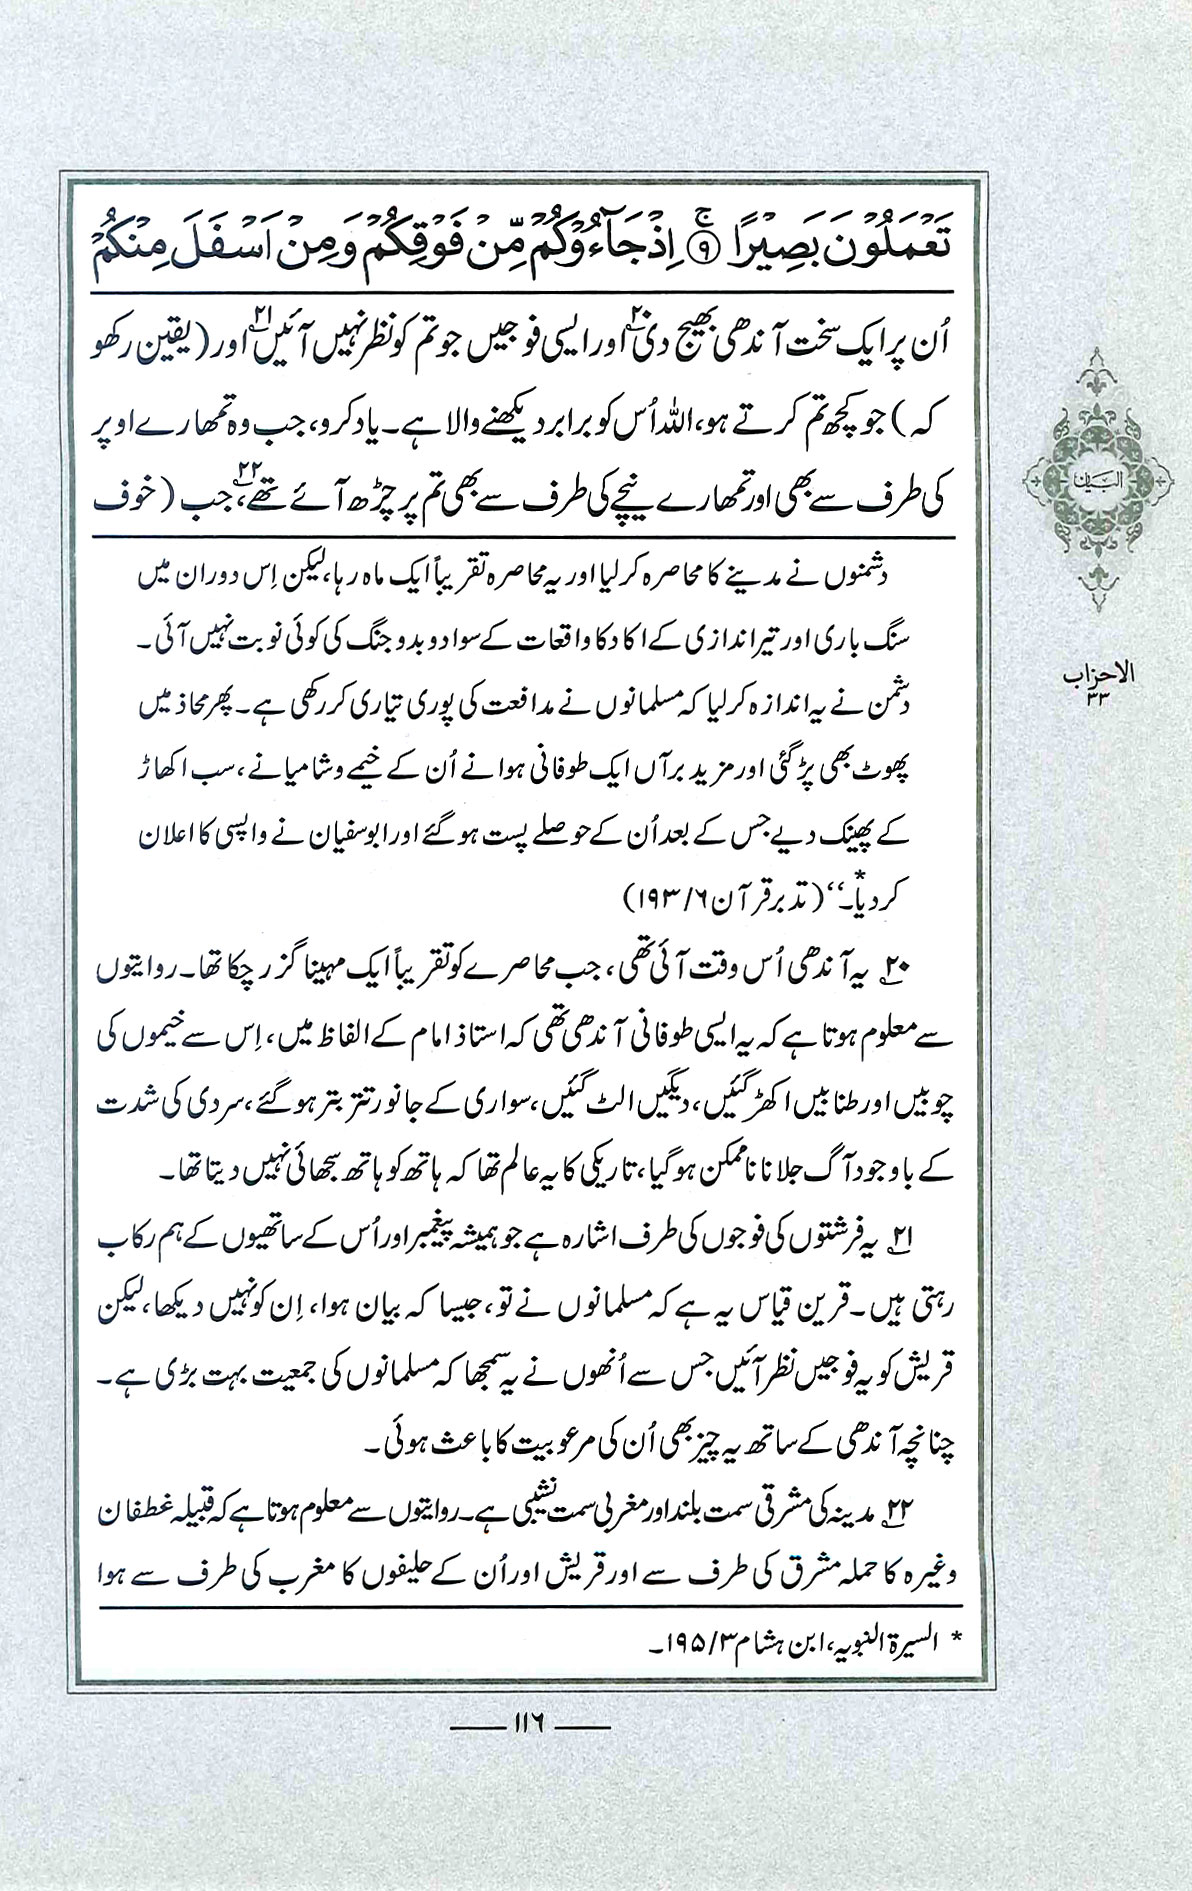 تَعْمَلُوْنَ بَصِيْرًا ﴿۹﴾ۚ اِذْ جَآءُوْكُمْ مِّنْ فَوْقِكُمْ وَمِنْ اَسْفَلَ مِنْكُمْ
اُن پر ایک سخت آندھی بھیج دی۲۰ اور ایسی فوجیں جو تم کو نظر نہیں آئیں۲۱ اور (یقین رکھو
کہ) جو کچھ تم کرتے ہو، اللہ اُس کو برابر دیکھنے والا ہے۔ یاد کرو، جب وہ تمھارے اوپر
کی طرف سے بھی اور تمھارے نیچے کی طرف سے بھی تم پر چڑھ آئے تھے،۲۲ جب (خوف
البیان
الاحزاب
۳۳
دشمنوں نے مدینے کا محاصرہ کر لیا اور یہ محاصرہ تقریباً ایک ماہ رہا، لیکن اِس دوران میں
سنگ باری اور تیر اندازی کے اکا دکا واقعات کے سوا دو بدو جنگ کی کوئی نوبت نہیں آئی۔
دشمن نے یہ اندازہ کر لیا کہ مسلمانوں نے مدافعت کی پوری تیاری کر رکھی ہے۔ پھر محاذ میں
پھوٹ بھی پڑ گئی اور مزید برآں ایک طوفانی ہوا نے اُن کے خیمے و شامیانے، سب اکھاڑ
کے پھینک دیے جس کے بعد اُن کے حوصلے پست ہو گئے اور ابوسفیان نے واپسی کا اعلان
کر دیا۔*‘‘ (تدبرقرآن ۶/ ۱۹۳)
۲۰؎ یہ آندھی اُس وقت آئی تھی، جب محاصرے کو تقریباً ایک مہینا گزر چکا تھا۔ روایتوں
سے معلوم ہوتا ہے کہ یہ ایسی طوفانی آندھی تھی کہ استاذ امام کے الفاظ میں، اِس سے خیموں کی
چوبیں اور طنابیں اکھڑ گئیں، دیگیں الٹ گئیں، سواری کے جانور تتر بتر ہو گئے، سردی کی شدت
کے باوجود آگ جلانا ناممکن ہو گیا، تاریکی کا یہ عالم تھا کہ ہاتھ کو ہاتھ سجھائی نہیں دیتا تھا۔
۲۱؎ یہ فرشتوں کی فوجوں کی طرف اشارہ ہے جو ہمیشہ پیغمبر اور اُس کے ساتھیوں کے ہم رکاب
رہتی ہیں۔ قرین قیاس یہ ہے کہ مسلمانوں نے تو، جیسا کہ بیان ہوا، اِن کو نہیں دیکھا، لیکن
قریش کو یہ فوجیں نظر آئیں جس سے اُنھوں نے یہ سمجھا کہ مسلمانوں کی جمعیت بہت بڑی ہے۔
چنانچہ آندھی کے ساتھ یہ چیز بھی اُن کی مرعوبیت کا باعث ہوئی۔
۲۲؎ مدینہ کی مشرقی سمت بلند اور مغربی سمت نشیبی ہے۔ روایتوں سے معلوم ہوتا ہے کہ قبیلہ غطفان
وغیرہ کا حملہ مشرق کی طرف سے اور قریش اور اُن کے حلیفوں کا مغرب کی طرف سے ہوا
* السیرۃ النبویہ، ابن ہشام ۳/ ۱۹۵۔
۱۱۶